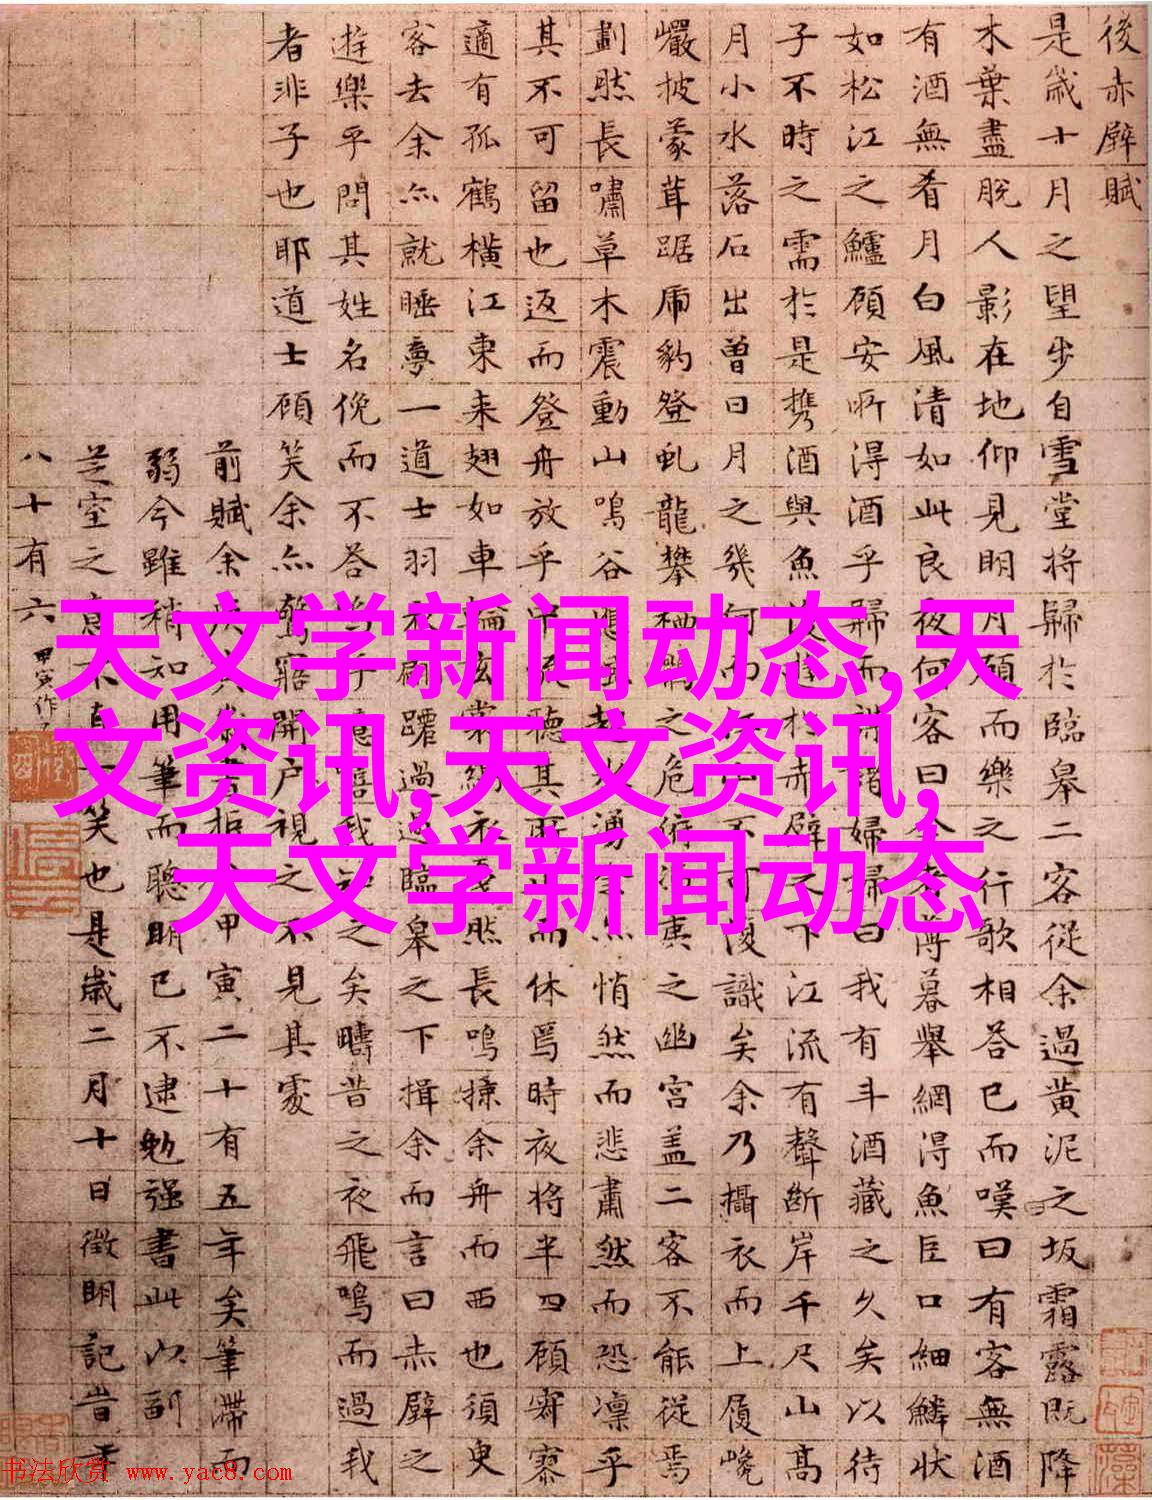 後赤壁賦
是歲十月之望步自雪堂將歸於臨皋二客從余過黃泥之坂霜露既降
木葉盡脫人影在地仰見明月顧而樂之行歌相答已而嘆曰有客無酒
有酒無肴月白風清如此良夜何客曰今者薄暮舉網得魚巨口細鱗狀
如松江之鱸顧安所得酒乎歸而謀諸婦婦曰我有斗酒藏之久矣以待
子不時之需於是攜酒與魚復遊於赤壁之下江流有聲斷岸千尺山高
月小水落石出曾日月之幾何而江山不可復識矣余乃攝衣而上履巉
巖披蒙茸踞虎豹登虬龍攀栖鶻之危俯馮夷之幽宮蓋二客不能從焉
劃然長嘯草木震動山鳴谷應風起水湧余亦悄然而悲肅然而恐凜乎
其不可留也返而登舟放乎中流聽其所止而休焉時夜將半四顧寂寥
適有孤鶴橫江東来翅如車輪玄裳縞衣戛然長鳴掠余舟而西也須臾
客去余亦就睡夢一道士羽衣翩躚過臨皋之下揖余而言曰赤壁之
遊樂乎問其姓名俛而不答嗚乎噫嘻我知之矣疇昔之夜飛鳴而過我
者非子也耶道士顧笑余亦驚寤開户視之不見其處
前賦余 書 甲寅二十有五年矣筆滯而
弱今雖稍知用筆而聰明已不逮勉强書此以副
芝室之意不直一笑也是歲二月十日徵明記昔年
八十有六
甲寅作
天文学新闻动态,天
文资讯,天文资讯,
天文学新闻动态
书法欣赏 www.yac8.com